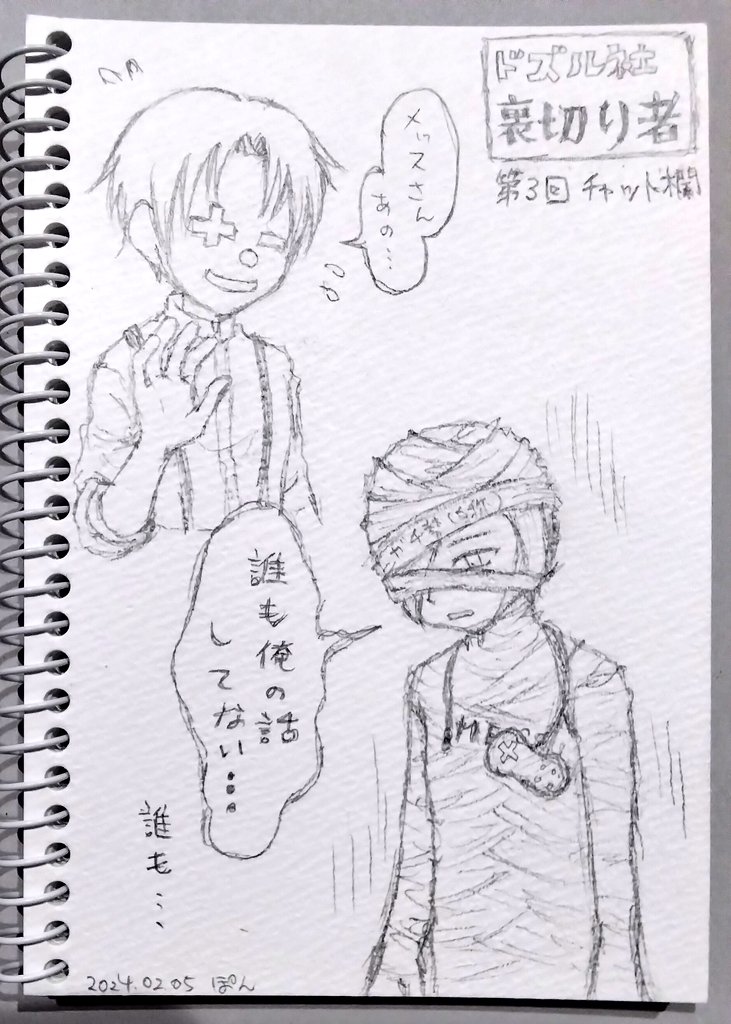 ドズル社
裏切り者
第3回 チャット欄
メッスさん
あの…
誰も俺の話
してない…
誰も…
2024.02.05 ぽん